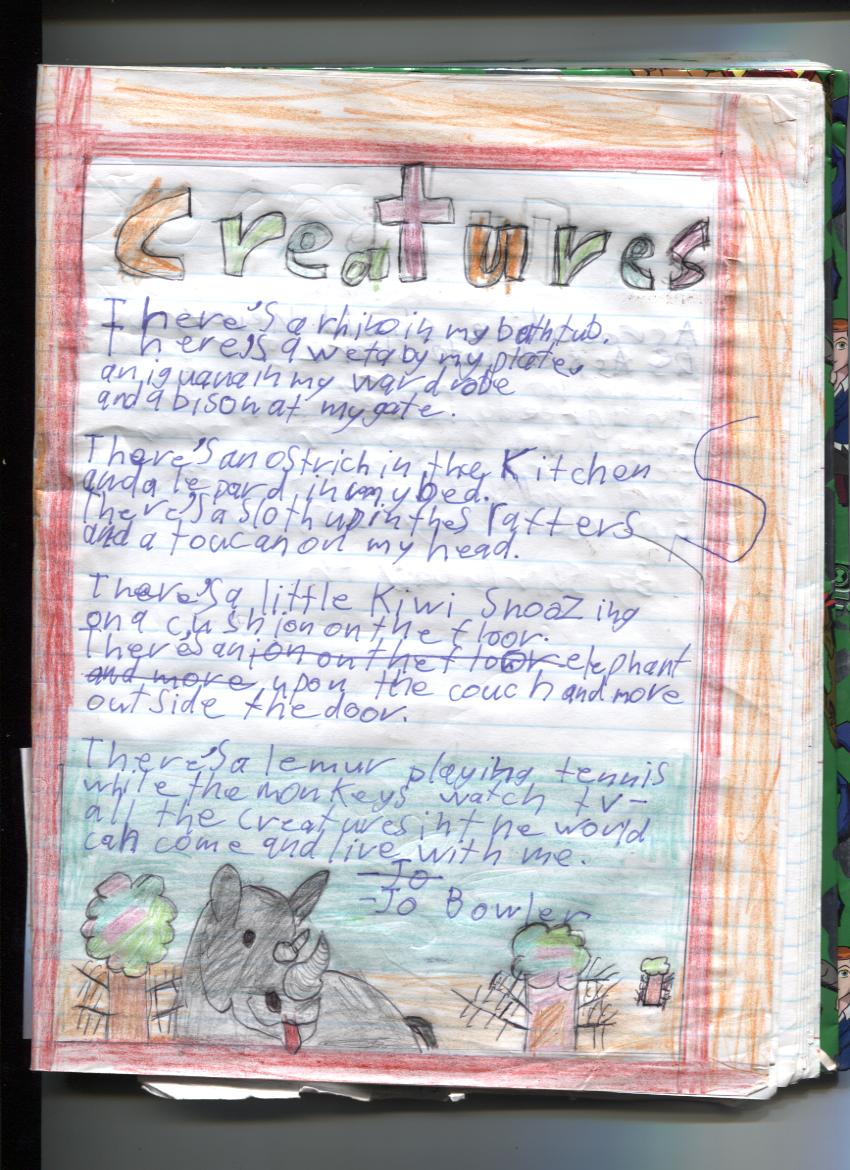 Creatures
There's a rhino in my bathtub.
There's a weta by my plate,
an iguana in my wardrobe
and a bison at my gate.
There's an ostrich in the Kitchen
and a lepard in my bed.
There's a sloth up in thes rafters
and a toucan on my head.
There's a little Kiwi Snoozing
on a cushion on the floor.
There's an ion on the floor elephant
and more upon the couch and more
outside the door.
There's a lemur playing tennis
while the monkeys watch tv-
all the creatures in the world
can come and live with me.
-Jo
-Jo Bowler